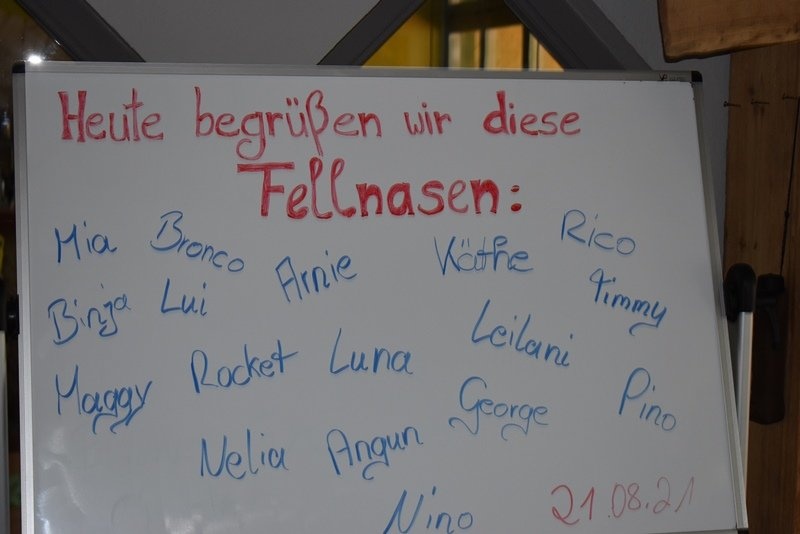 Heute begrüßen wir diese
Fellnasen:
Mia Bronco Arnie Käthe Rico
Binja Lui Timmy
Maggy Rocket Luna Leilani
George Pino
Nelia Angun
Nino 21.08.21